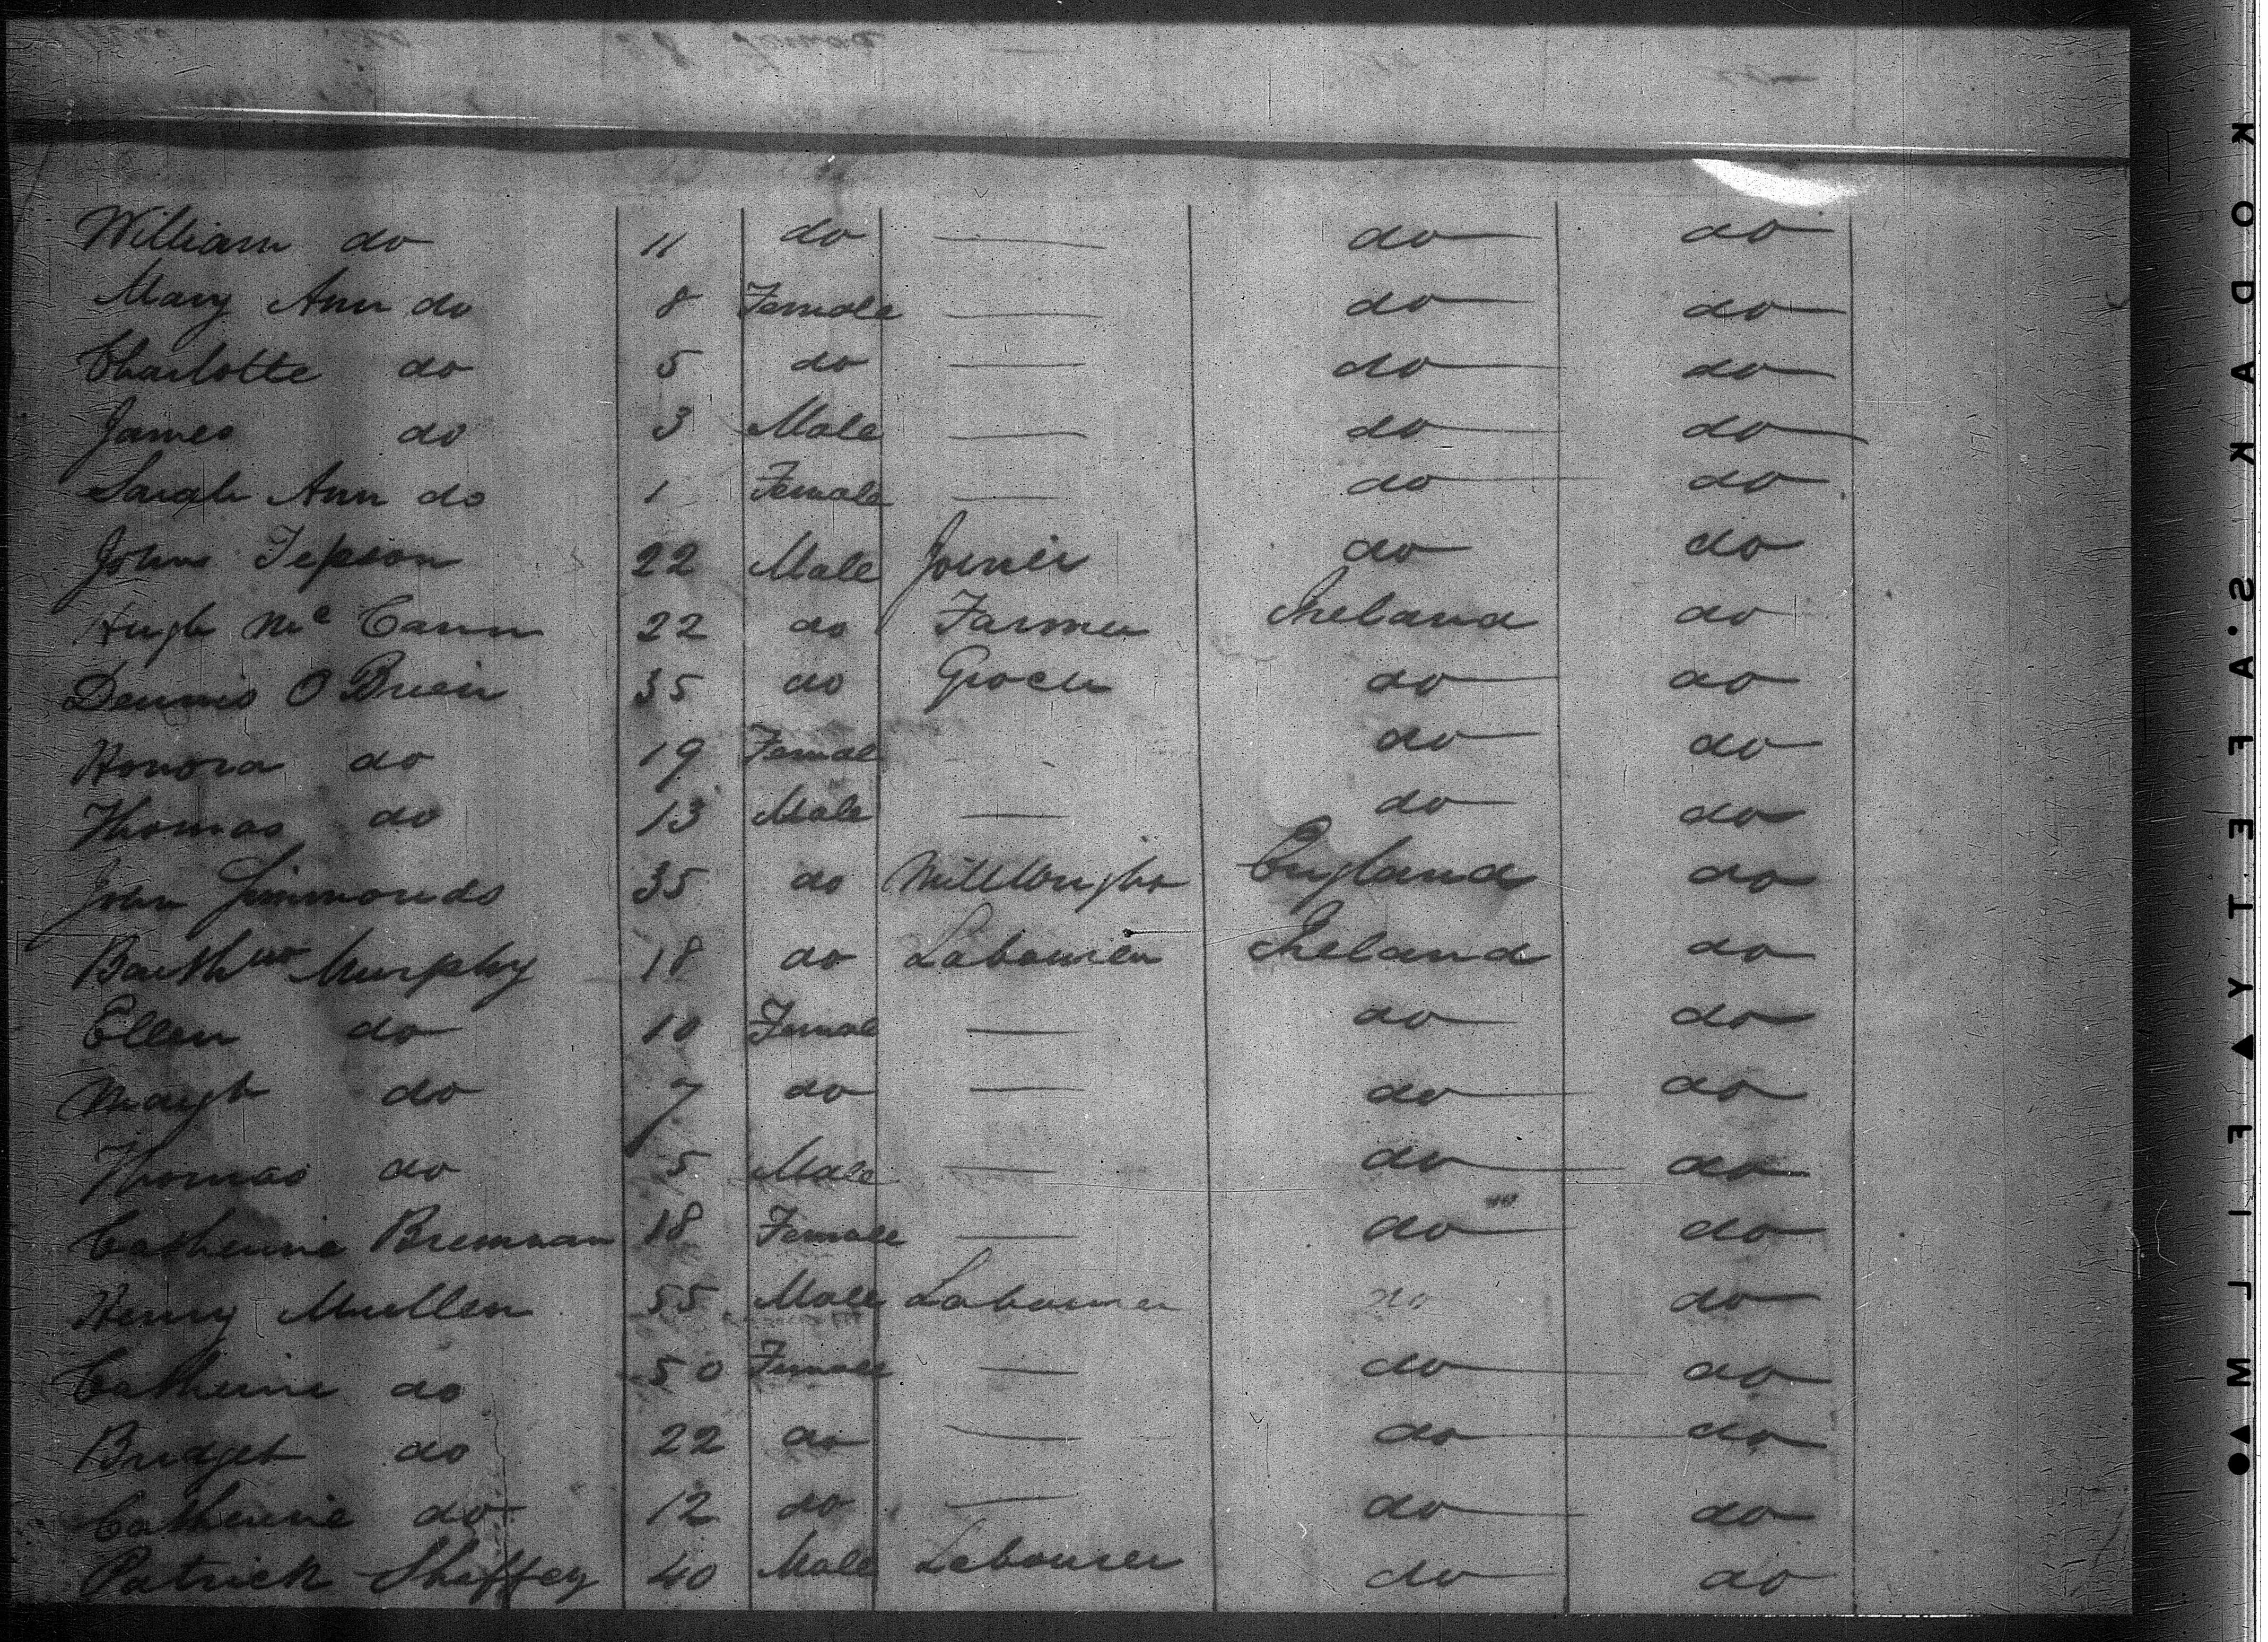 William do 11 do — do do
Mary Ann do 8 Female — do do
Charlotte do 5 do — do do
James do 3 Male — do do
Sarah Ann do 1 Female — do do
John Jepson 22 Male Joiner do do
Hugh Mc Cann 22 do Farmer Ireland do
Dennis O Brien 35 do Grocer do do
Honora do 19 Female do do
Thomas do 13 Male — do do
John Simmonds 35 do Millwright England do
Barthw Murphy 18 do Labourer Ireland do
Ellen do 10 Female — do do
Margt do 7 do — do do
Thomas do 5 Male — do do
Catherine Brennan 18 Female — do do
Henry Muellen 55 Male Labourer do do
Catherine do 50 Female — do do
Bridget do 22 do — do do
Catherine do 12 do — do do
Patrick Shaffey 40 Male Labourer do do
KODAK S.AFETY▲FILM▲●